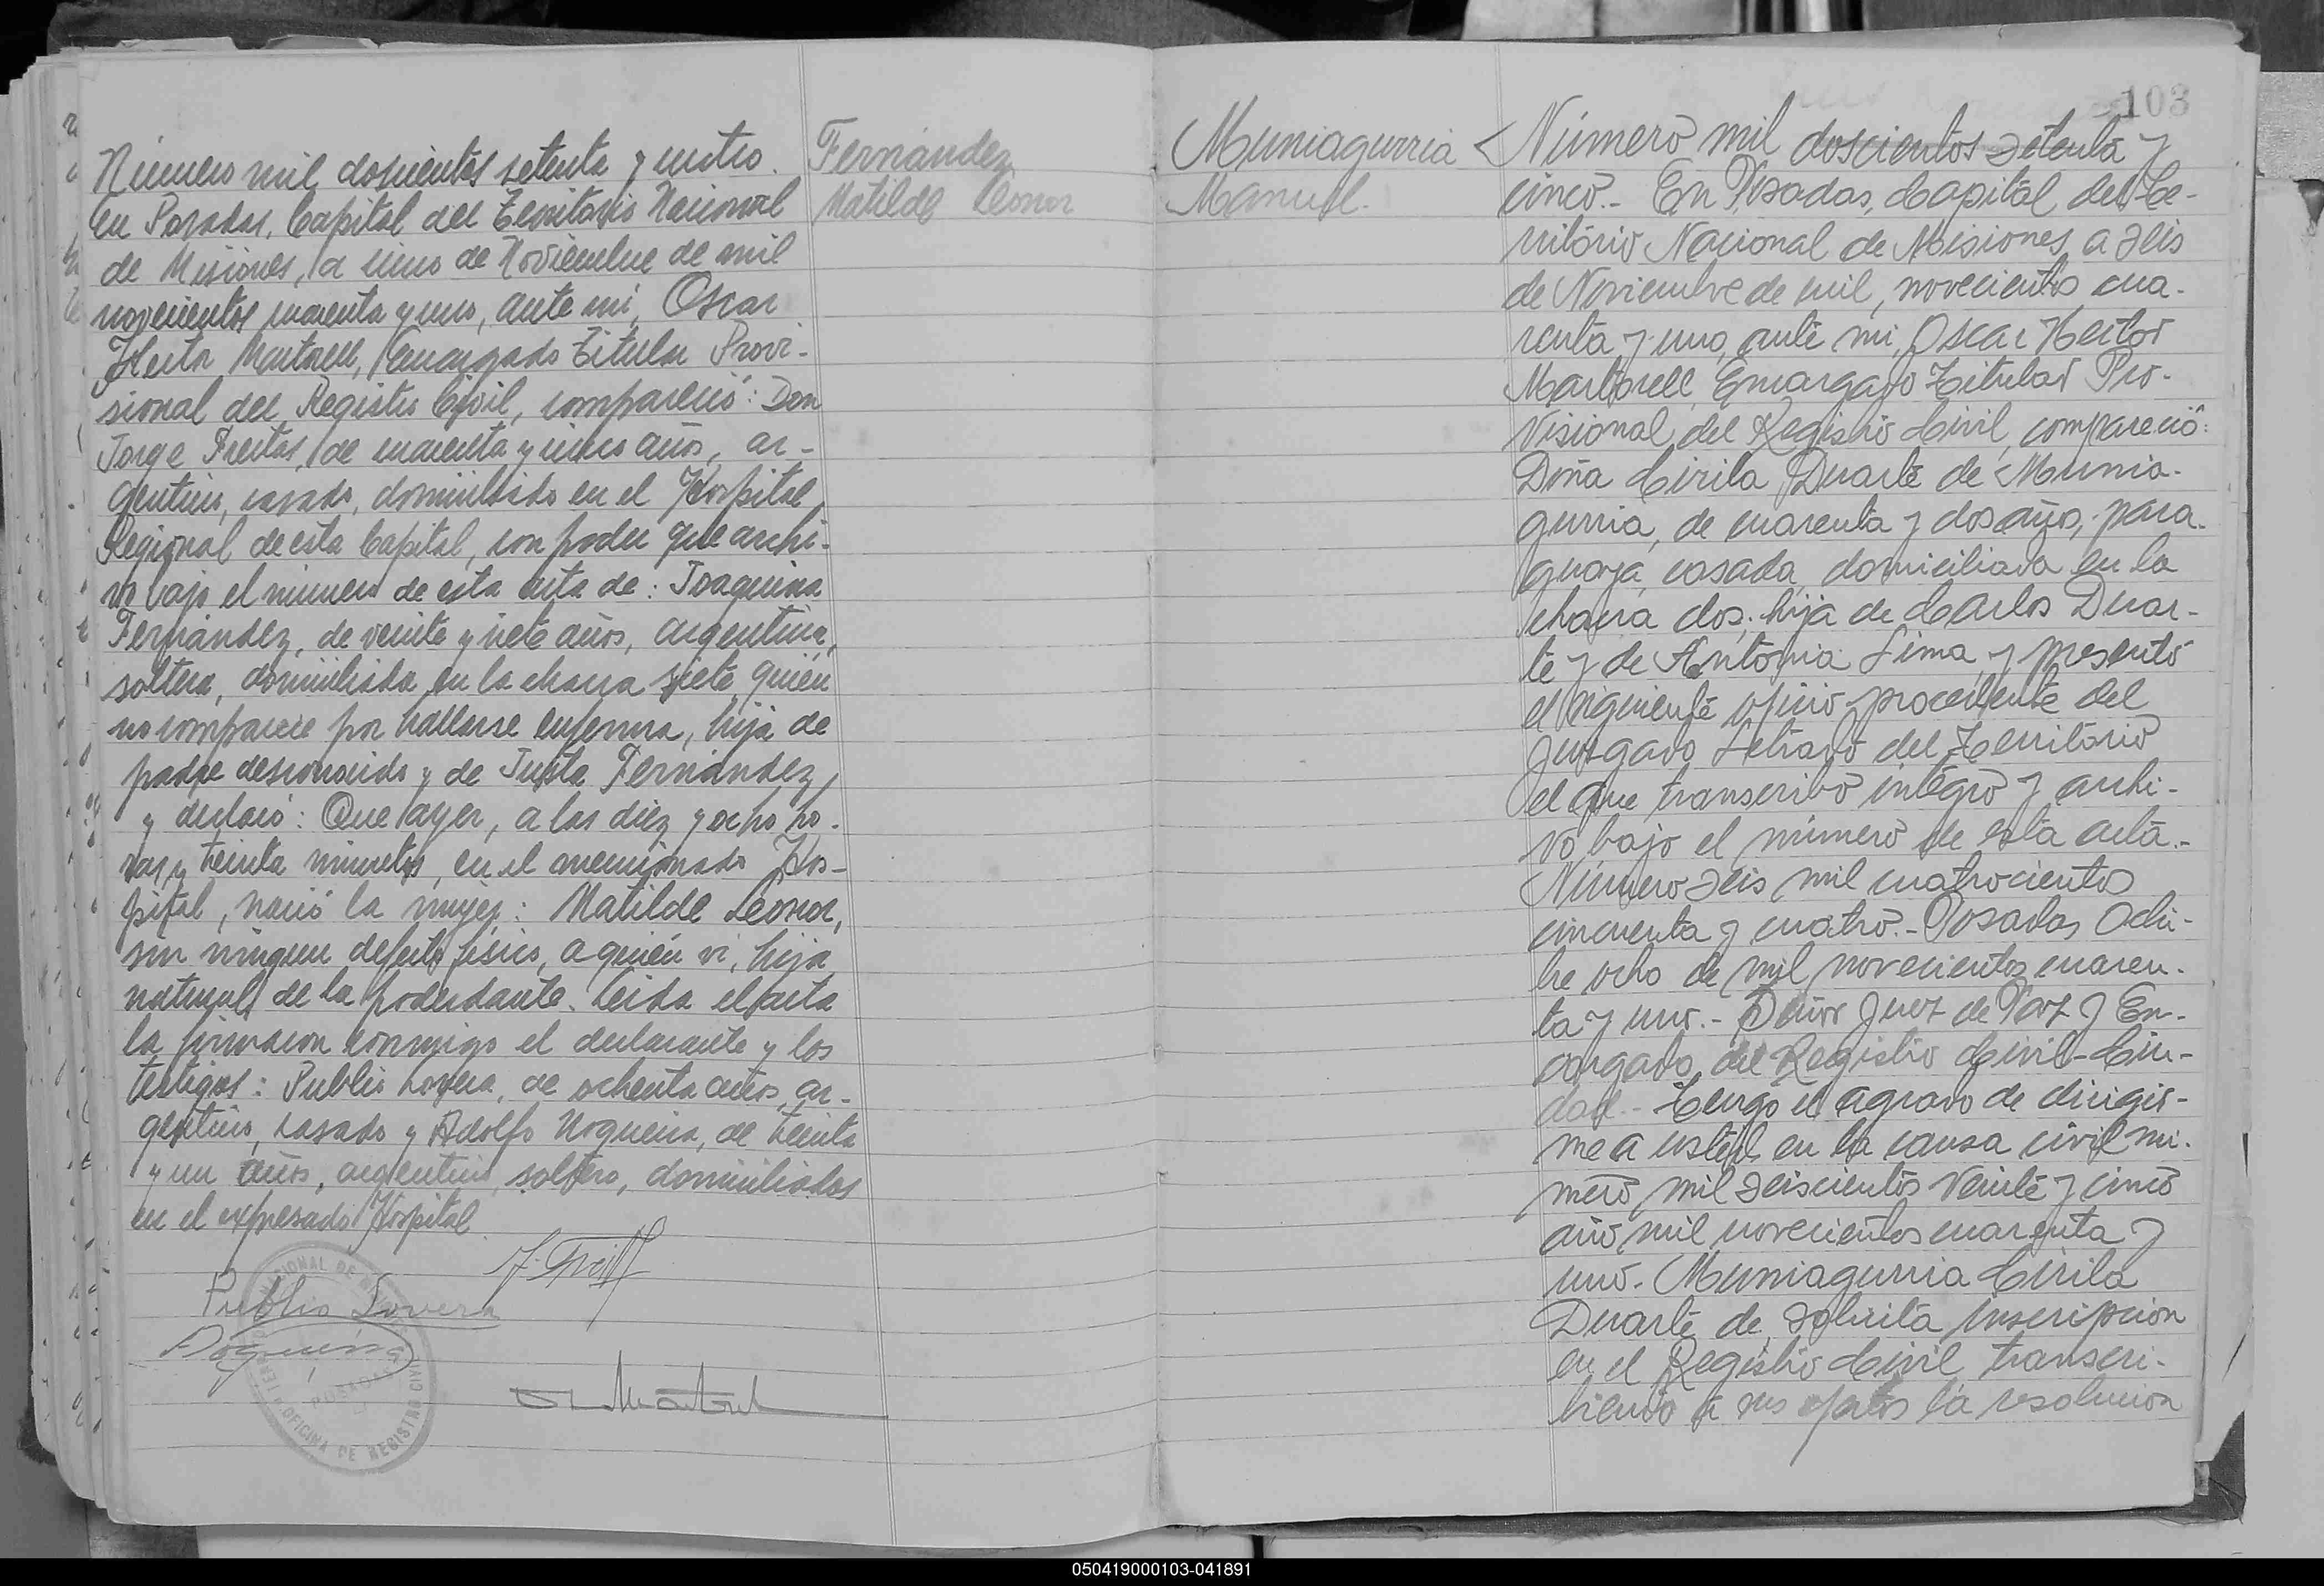 Número mil doscientos setenta y cuatro.
En Posadas, Capital del Territorio Nacional
de Misiones, a cinco de Noviembre de mil
novecientos cuarenta y uno, ante mí, Oscar
Hector Martorell, Encargado Titular Provi-
sional del Registro Civil, compareció: Don
Jorge Freitas, de cuarenta y cinco años, ar-
gentino, casado, domiciliado en el Hospital
Regional de esta Capital, con poder que archi-
vo bajo el número de esta acta de: Joaquina
Fernández, de veinte y siete años, argentina,
soltera, domiciliada en la chacra siete, quién
no comparece por hallarse enferma, hija de
padre desconocido y de Justa Fernández,
y declaró: Que ayer, a las diez y ocho ho-
ras y treinta minutos, en el mencionado Hos-
pital, nació la mujer: Matilde Leonor,
sin ningun defecto físico, a quién vi, hija
natural de la poderdante. Leida el acta
la firmaron conmigo el declarante y los
testigos: Publio Lovera, de ochenta años, ar-
gentino, casado y Adolfo Nogueira, de treinta
y un años, argentino, soltero, domiciliados
en el expresado Hospital.
Publio Lovera
Fernández
Matilde Leonor
NACIONAL DE
POSADAS
OFICINA DE REGISTRO CIVIL
103
Muniagurria
Manuel.
Número mil doscientos setenta y
cinco.- En Posadas, Capital del Te-
rritorio Nacional de Misiones, a seis
de Noviembre de mil, novecientos cua-
renta y uno, ante mi, Oscar Hector
Martorell, Encargado Titular Pro-
visional del Registro Civil, compareció:
Doña Cirila Duarte de Munia-
gurria, de cuarenta y dos años, para-
guaya, casada, domiciliada en la
chacra dos, hija de Carlos Duar-
te y de Antonia Lima, y presentó
el siguiente oficio procedente del
Juzgado Letrado del Territorio
el que transcribo integro y archi-
vo bajo el número de esta acta.-
Número seis mil cuatrocientos
cincuenta y cuatro.- Posadas, Octu-
bre ocho de mil novecientos cuaren-
ta y uno.- Señor Juez de Paz y En-
cargado del Registro Civil-Ciu-
dad.- Tengo el agrado de dirigir-
me a usted, en la causa civil nú-
mero, mil seiscientos veinte y cinco
año mil novecientos cuarenta y
uno. Muniagurria Cirila
Duarte de, solicita inscripcion
en el Registro Civil, transcri-
biendo a sus efectos la resolucion
050419000103-041891